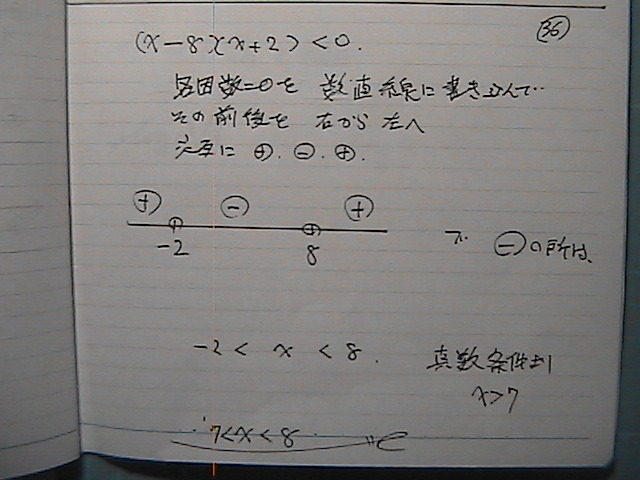 36
(x-8)(x+2)<0.
各因数=0を 数直線に書き込んで‥
その前後を 右から 左へ
交互に ⊕.⊖.⊕.
⊕ ⊖ ⊕
-2 8
で ⊖の所は、
-2< x <8.
真数条件より
x>7
∴ 7<x<8